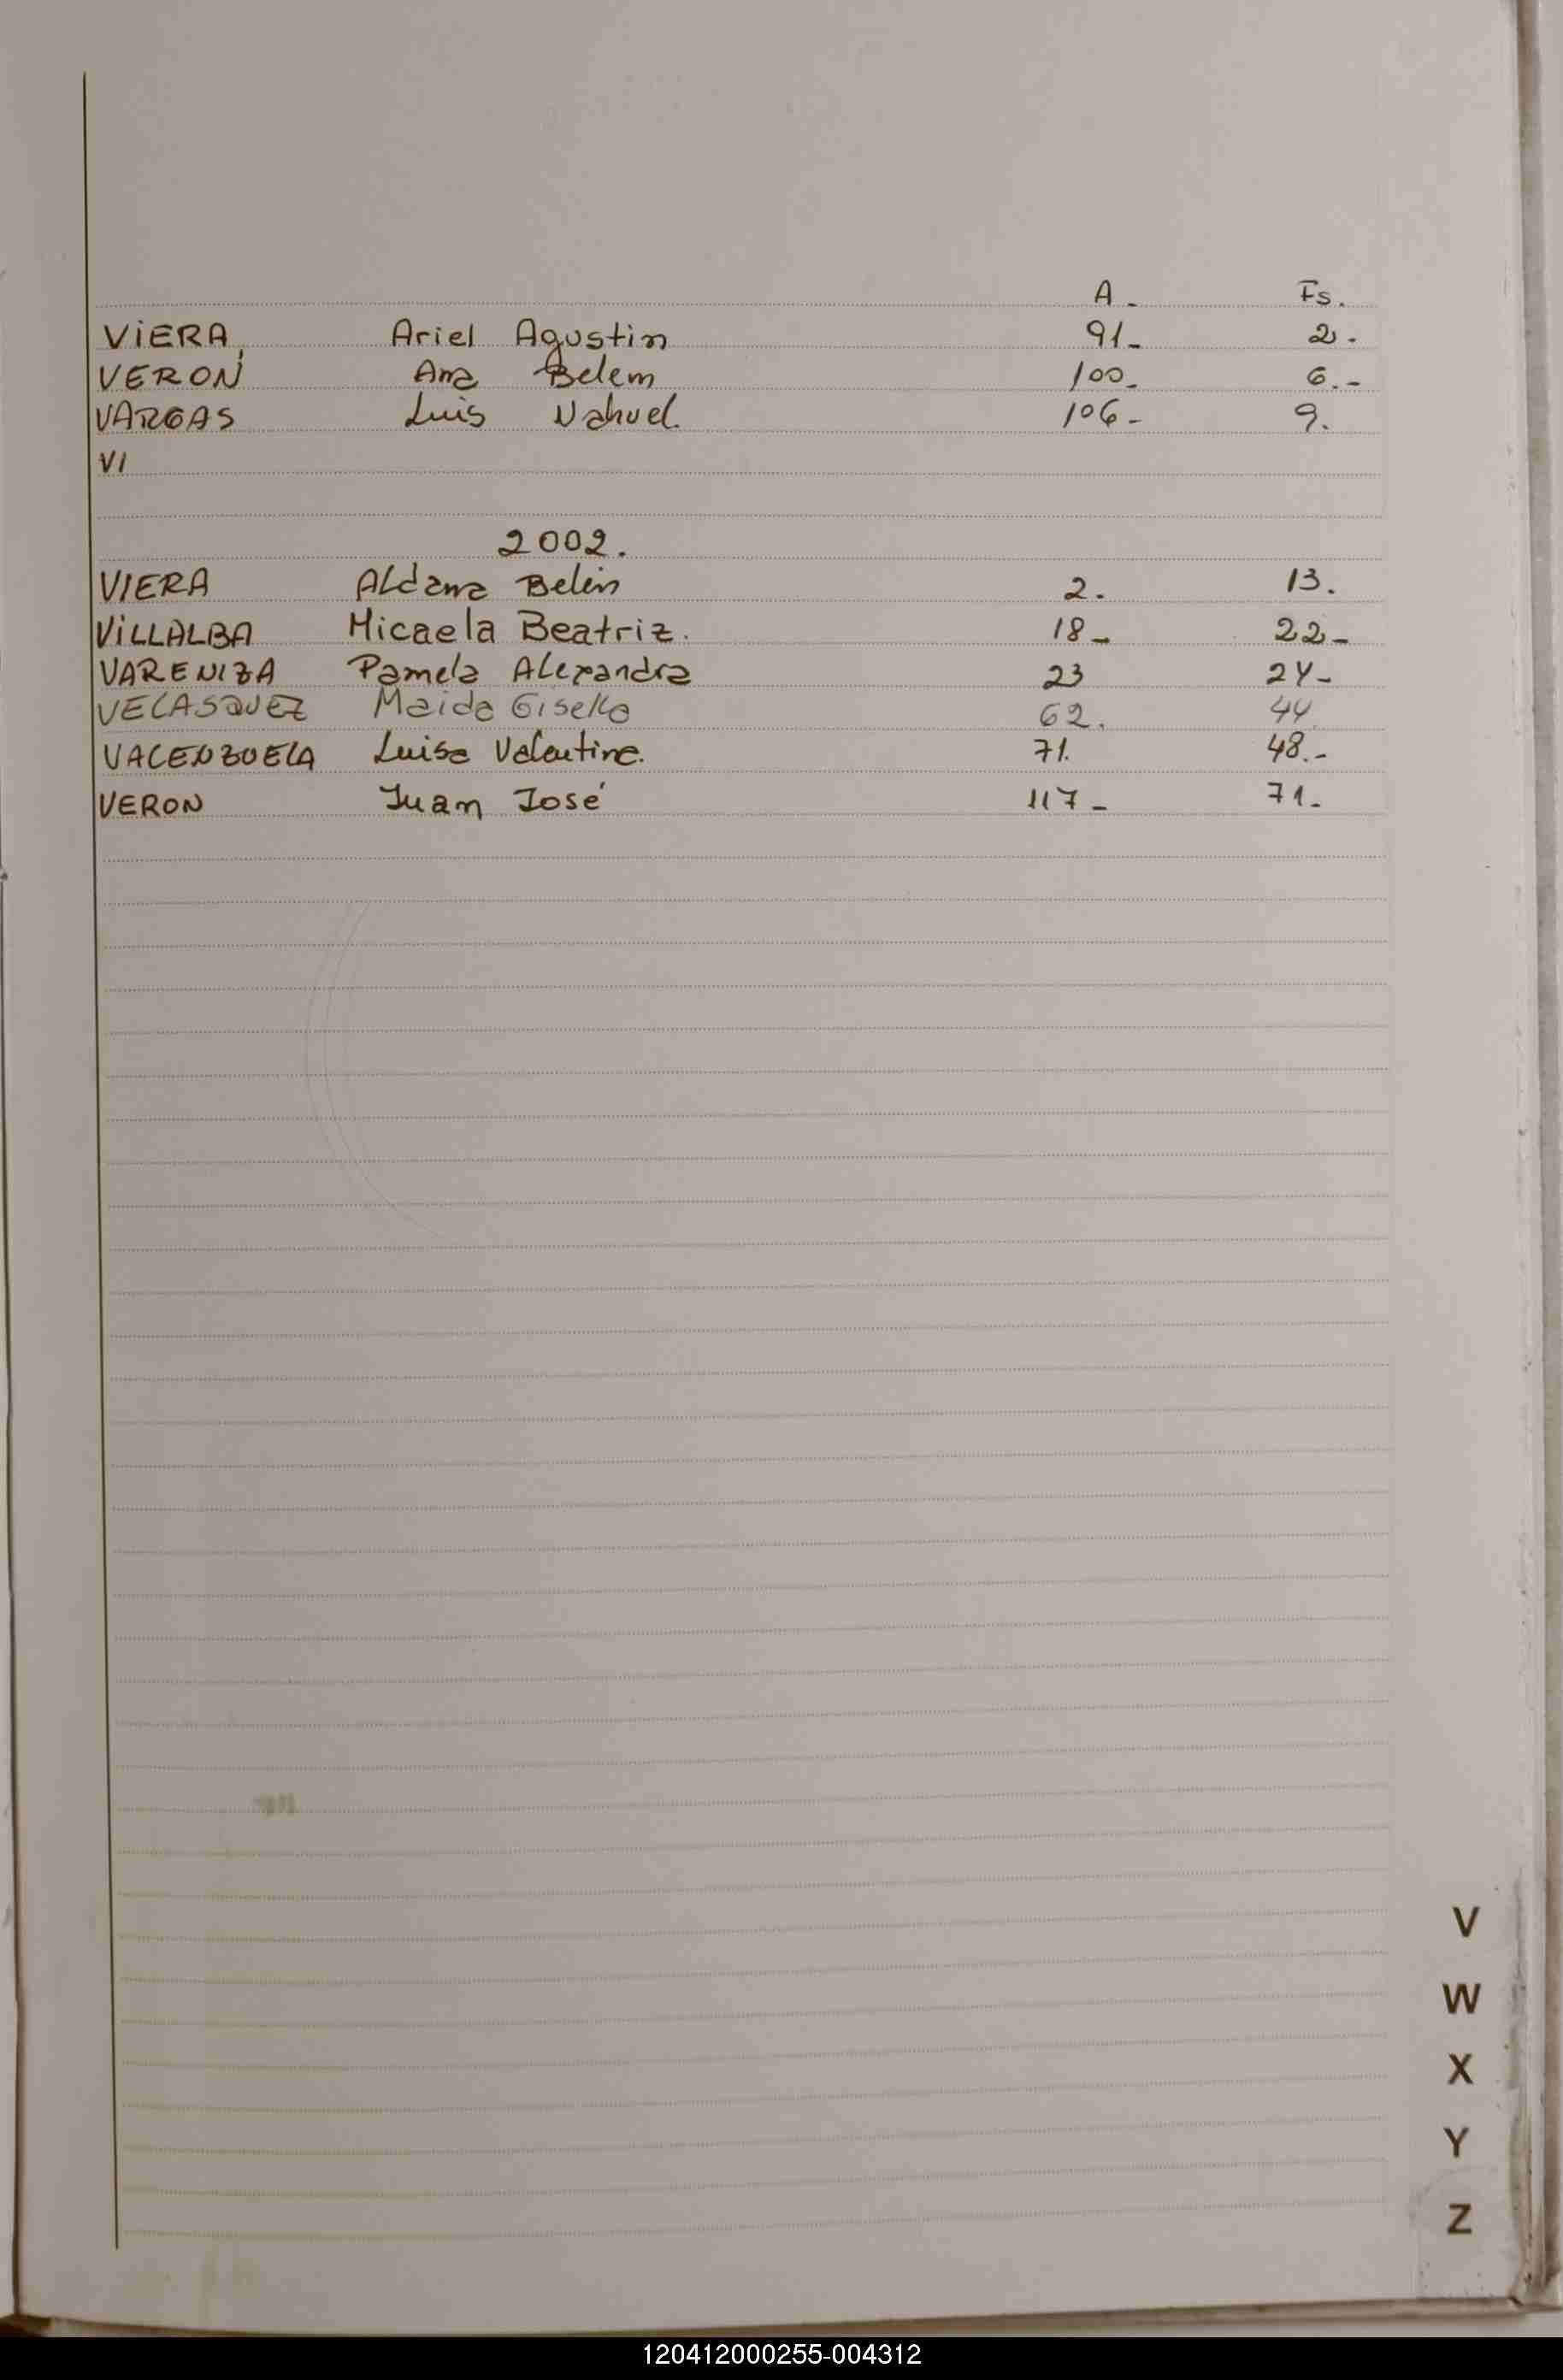 A. Fs.
VIERA, Ariel Agustin 91- 2.
VERON Ana Belem 100- 6.-
VARGAS Luis Nahuel. 106- 9.
VI
2002.
VIERA ALdana Belén 2. 13.
VILLALBA Micaela Beatriz. 18- 22-
VARENIZA Pamela ALexandra 23 24-
VELASQUEZ Maida Gisella 62. 44
VALENZUELA Luisa Valentina. 71. 48.-
VERON Juan José 117- 71-
V
W
X
Y
Z
120412000255-004312